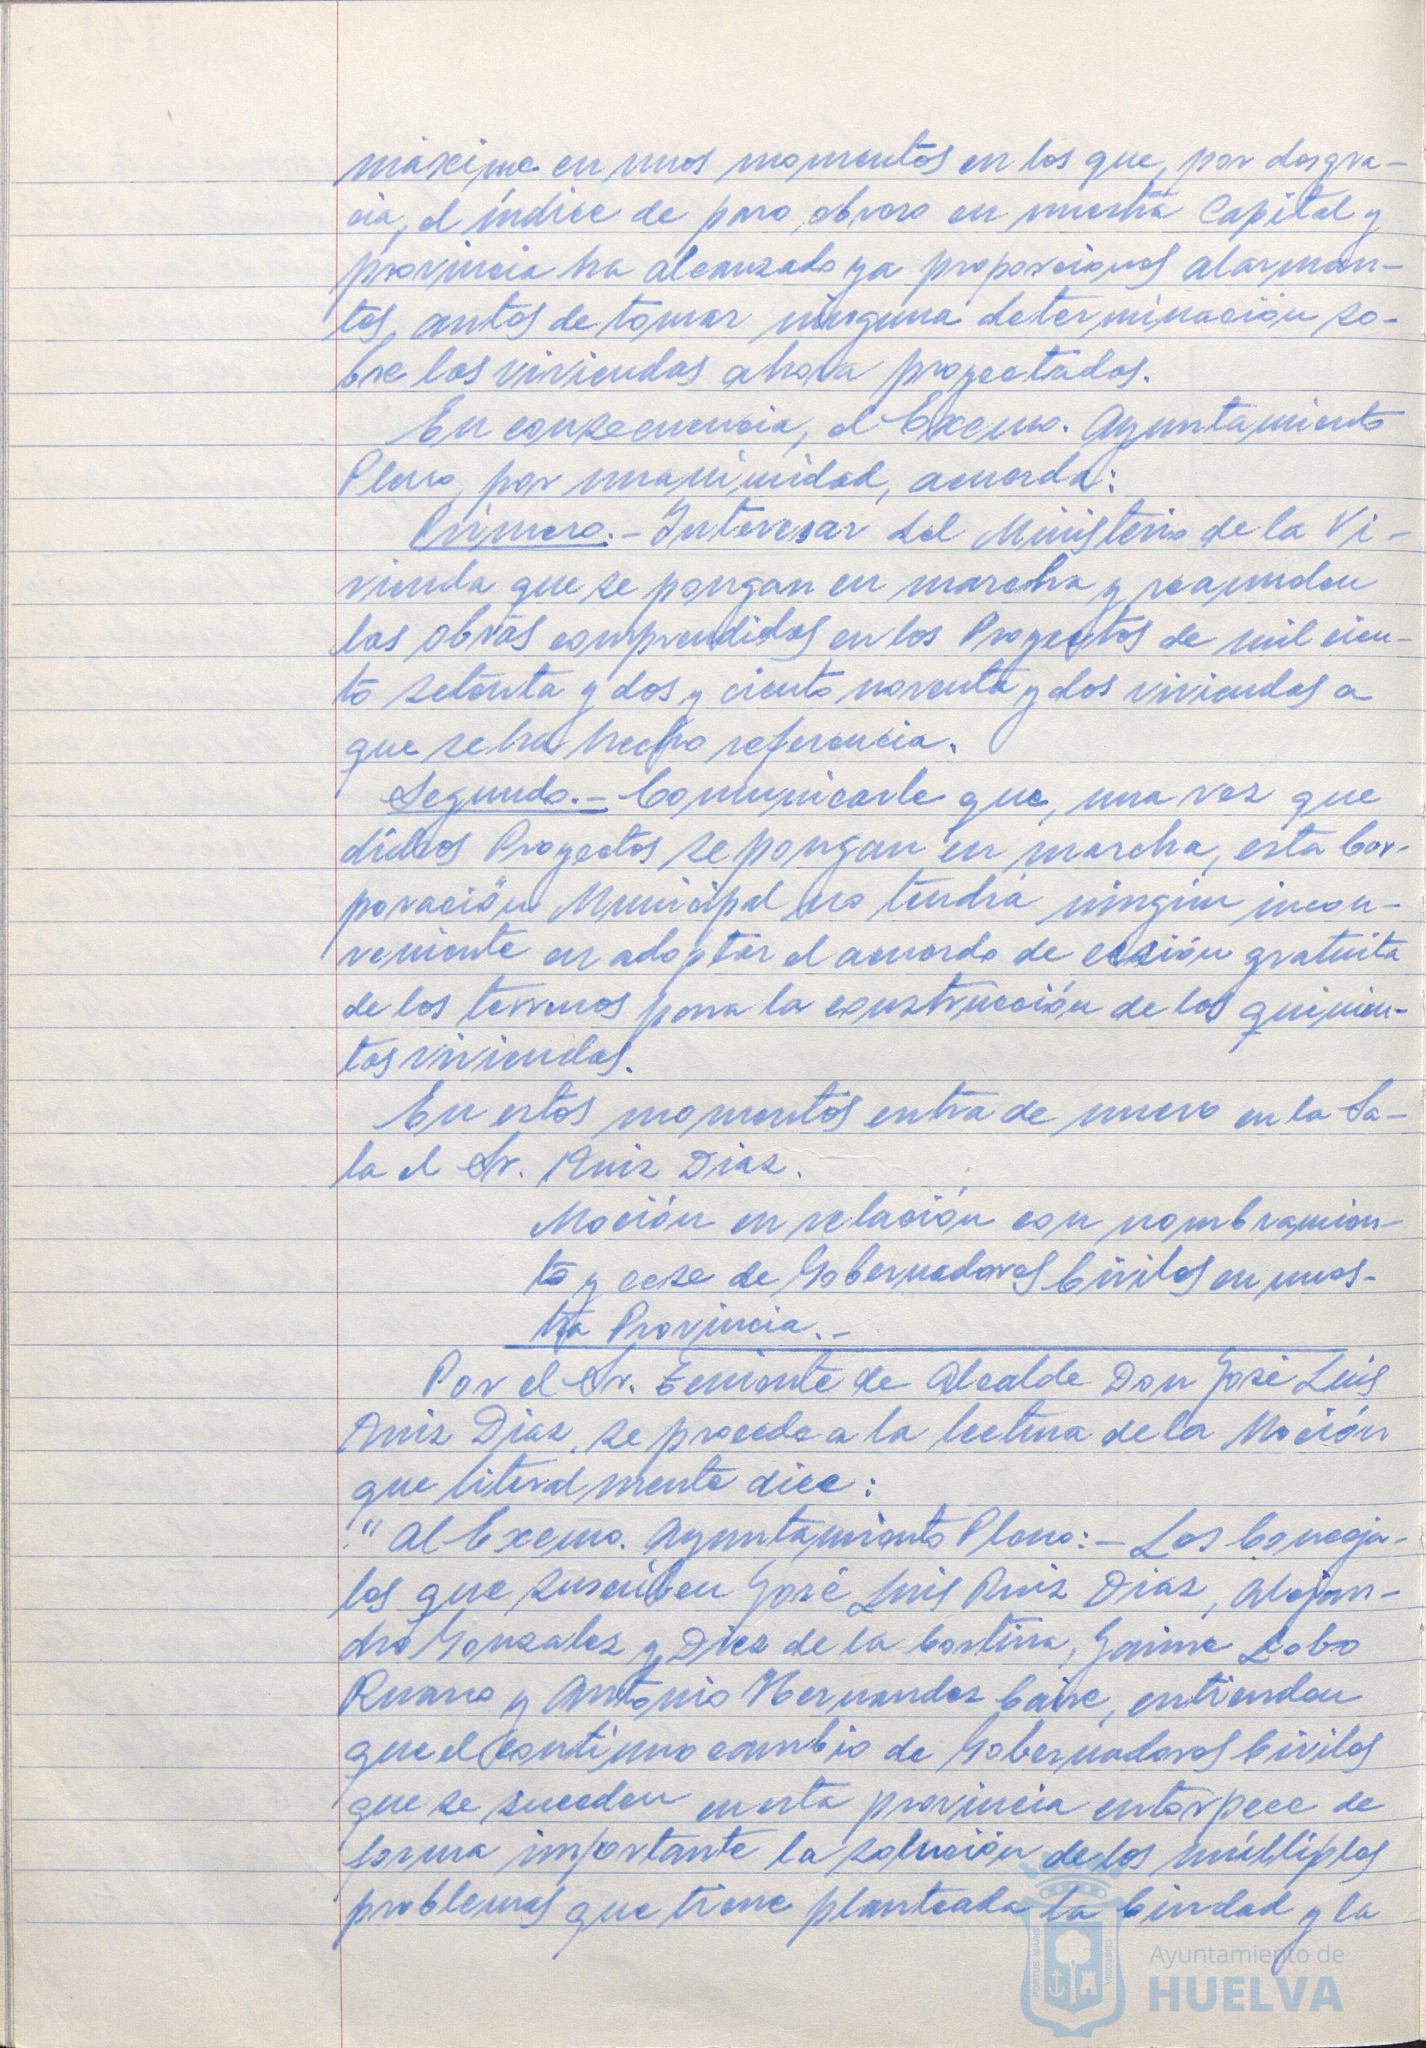 máxime en unos momentos en los que, por desgra-
cia, el índice de paro obrero en nuestra Capital y
provincia ha alcanzado ya proporciones alarman-
tes, antes de tomar ninguna determinación so-
bre las viviendas ahora proyectadas.
En consecuencia, el Excmo. Ayuntamiento
Pleno, por unanimidad, acuerda:
Primero.- Interesar del Ministerio de la Vi-
vienda que se pongan en marcha y reanuden
las obras comprendidas en los Proyectos de mil cien-
to setenta y dos y ciento noventa y dos viviendas a
que se ha hecho referencia.
Segundo.- Comunicarle que, una vez que
dichos Proyectos se pongan en marcha, esta Cor-
poración Municipal no tendrá ningún incon-
veniente en adoptar el acuerdo de cesión gratuita
de los terrenos para la construcción de las quinien-
tas viviendas.
En estos momentos entra de nuevo en la Sa-
la el Sr. Ruiz Diaz.
Moción en relación con nombramien-
to y cese de Gobernadores Civiles en nues-
tra Provincia.-
Por el Sr. Teniente de Alcalde Don José Luis
Ruiz Diaz, se procede a la lectura de la Moción
que literalmente dice:
"Al Excmo. Ayuntamiento Pleno:- Los Conceja-
les que suscriben José Luis Ruiz Diaz, Alejan-
dro Gonzalez y Diez de la Cortina, Jaime Lobo
Ruano y Antonio Hernandez Caire, entienden
que el continuo cambio de Gobernadores Civiles
que se suceden en esta provincia entorpece de
forma importante la solución de los múltiples
problemas que tiene planteada la Ciudad y la
PORTUS MARIS CUSTODIA
Ayuntamiento de
HUELVA